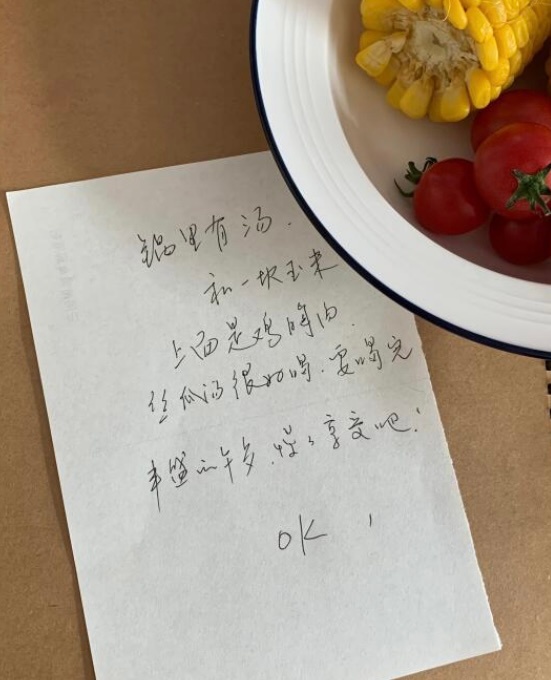 锅里有汤.
和一块玉米
上面是鸡胸肉.
丝瓜汤很好喝.要喝完
丰盛的午餐.慢慢享受吧!
OK!